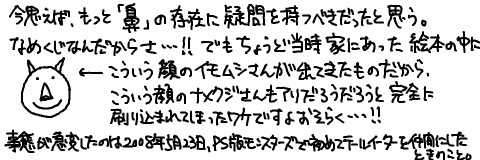 今思えば、もっと「鼻」の存在に疑問を持つべきだったと思う。
なめくじなんだからさ…!! でもちょうど当時家にあった絵本の中に
← こういう顔のイモムシさんが出てきたものだから、
こういう顔のナメクジさんもアリだろうだろうと完全に
刷り込まれてしまったワケですよおそらく…!!
事態が急変したのは2008年5月23日、PS版モンスターズで初めてテールイーターを仲間にした
ときのこと。